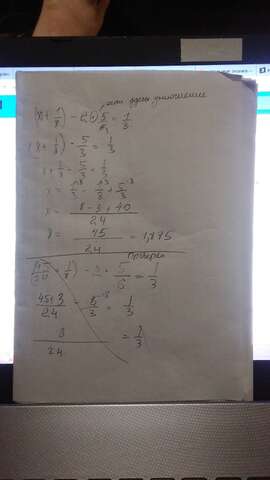 (x + 1/8) - 2 · 5/6 = 1/3
(x + 1/8) - 5/3 = 1/3
x + 1/8 - 5/3 = 1/3
x = 1/3 - 1/8 + 5/3
x = 8 - 3 + 40 / 24
x = 45 / 24 = 1,875
Проверка
(45/24 + 1/8) - 2 · 5/6 = 1/3
45+3 / 24 - 5/3 = 1/3
8 / 24 = 1/3